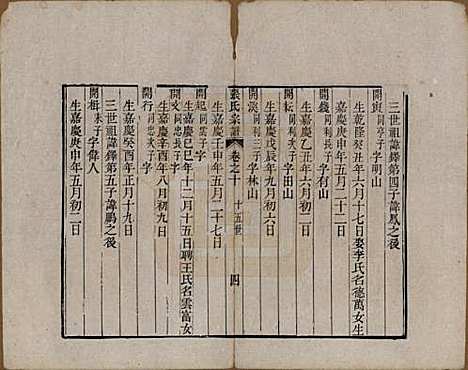 三世祖諱鐸第四子諱鳳之後
開輿同亭子字明山
生乾隆癸丑年六月十七日娶李氏名德萬女生
嘉慶庚申年五月二十二日
開錢同利長子字有山
嘉慶乙丑年六月初二日
開耘同利次子字出山
生嘉慶戊辰年九月初六日
開渶同利三子字林山
張氏宗譜 卷之十 十五世 四
生嘉慶壬申年五月二十七日
開起同雲子字
生嘉慶己巳年十二月十五日聘王氏名雲富女
開文同忠長子字
生嘉慶辛未年八月初九日
開行同忠次子字
生嘉慶癸酉年正月十九日
三世祖諱鐸第五子諱鵬之後
開楫末子字偉人
生嘉慶庚申年五月初二日